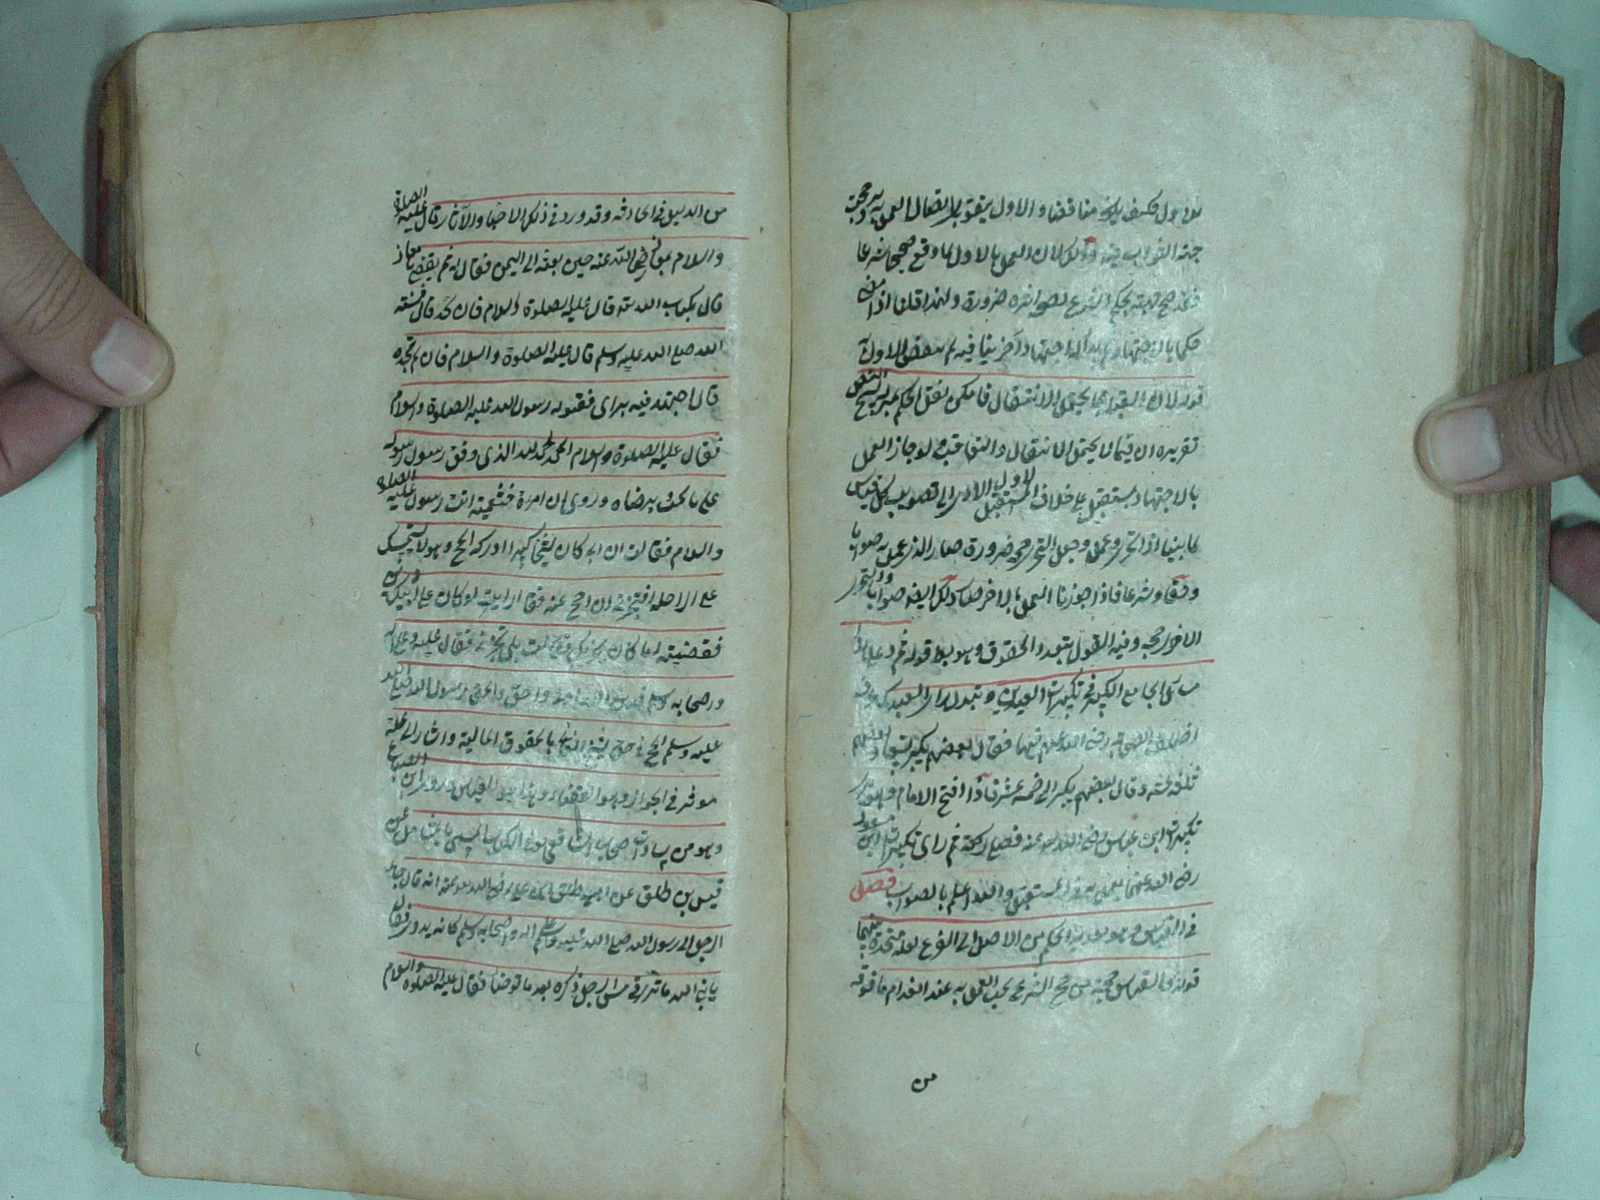 الاول فكيف يكون مناقضا والاول يتقوى باتصال العمل به وحجته
جهة الصواب فيه وذلك لان العمل بالاول لما وقع صحيحا شرعا
فقد صح بحكم الشرع لصواب ضرورة ولهذا قلنا اذا امضى
حكما باجتهاده ثم بدا له اجتهاد آخر ينافيه لم ينقض الاول
قوله لان القبلة مما يحتمل الانتقال فامكن نقل الحكم
تقريره ان فيما لا يحتمل الانتقال والتعاقب لو جاز العمل
بالاجتهاد مستقبل على خلاف الاول
كما بينا اذا تحرى وعمل وجعل التحري حجة ضرورة صار الذي عمل به صوابا
وحقا شرعا فاذا جوزنا العمل بالآخر صار ذلك ايضا صوابا والتحري
الآخر حجة وفيه القول بتعدد الحقوق وهو باطل قوله ثم وعلى هذا
مسائل الجامع الكبير في تكبيرات العيدين وتبدل راى العبد
اختلف الصحابة رضى الله عنهم فيها فقال بعضهم يكبر
وقال بعضهم يكبر الى خمسة عشر فاذا افتتح الامام وهو
تكبيرات ابن عباس رضى الله عنه فصلى ركعة ثم راى تكبيرات ابن مسعود
رضى الله عنهما يعمل به فى المستقبل والله اعلم بالصواب فصل
فى القياس وهو تعدية الحكم من الاصل الى الفرع بعلة متحدة بينهما
قوله القياس حجة من حجج الشرع يجب العمل به عند انعدام ما فوقه
من
من الدليل فى الحادثة وقد ورد فى ذلك الاخبار والآثار قال عليه الصلوة
والسلام لمعاذ رضى الله عنه حين بعثه الى اليمن فقال بم تقضى يا معاذ
قال بكتاب الله قال عليه الصلوة والسلام فان لم تجد قال فبسنة
الله صلى الله عليه وسلم قال عليه الصلوة والسلام فان لم تجده
قال اجتهد فيه براى فقبوله رسول الله عليه الصلوة والسلام
فقال عليه الصلوة والسلام الحمد لله الذى وفق رسول رسوله
على ما يحب برضاه وروى ان امرأة خثعمية اتت رسول عليه الصلوة
والسلام فقالت ان ابى كان شيخا كبيرا ادركه الحج وهو لا يستمسك
على الراحلة افيجزئ ان احج عنه فقال ارايت لو كان على ابيك دين
فقضيته اما كان يجزئك فقالت بلى يجزئ فقال عليه وعلى آله
وصحابه وسلم فدين الله احق والحق رسول الله صلى الله
عليه وسلم الحج فى حق الشيخ الفانى بالحقوق المالية واشار الى علة
مؤثرة فى الجواز وهو القضاء وهذا هو القياس وروى ابن الصباغ
وهو من سادات اصحاب الشافعى فى الكتاب المسمى بالشامل عن
قيس بن طلق عن ابيه طلق بن على رضى الله عنه انه قال جاء
الرجل الى رسول الله صلى الله عليه وعلى آله واصحابه وسلم كانه بدوى فقال
يا نبى الله ما ترى فى مس الرجل ذكره بعد ما توضا فقال عليه الصلوة والسلام